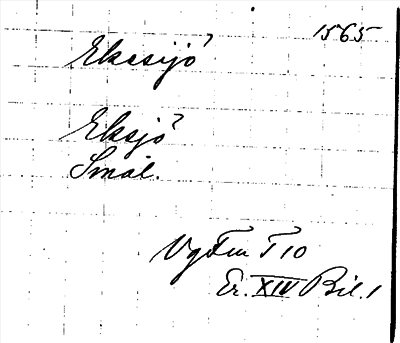 1565
Ekssijö
Eksjö
Smål.
Vg Fm T 10
Er. XIV Bil. 1